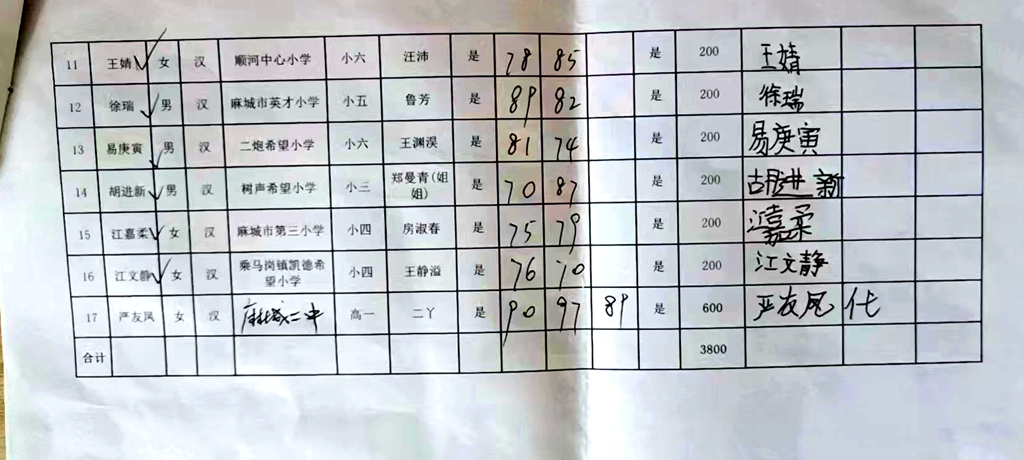 11 王婧 女 汉 顺河中心小学 小六 汪沛 是 78 85 是 200 王婧
12 徐瑞 男 汉 麻城市英才小学 小五 鲁芳 是 89 82 是 200 徐瑞
13 易庚寅 男 汉 二炮希望小学 小六 王渊淏 是 81 74 是 200 易庚寅
14 胡进新 男 汉 树声希望小学 小三 郑曼青(姐姐) 是 70 87 是 200 胡进新
15 江嘉柔 女 汉 麻城市第三小学 小四 房淑春 是 75 79 是 200 江嘉柔
16 江文静 女 汉 乘马岗镇凯德希望小学 小四 王静溢 是 76 70 是 200 江文静
17 严友凤 女 汉 麻城二中 高一 二丫 是 90 97 89 是 600 严友凤 代
合计 3800